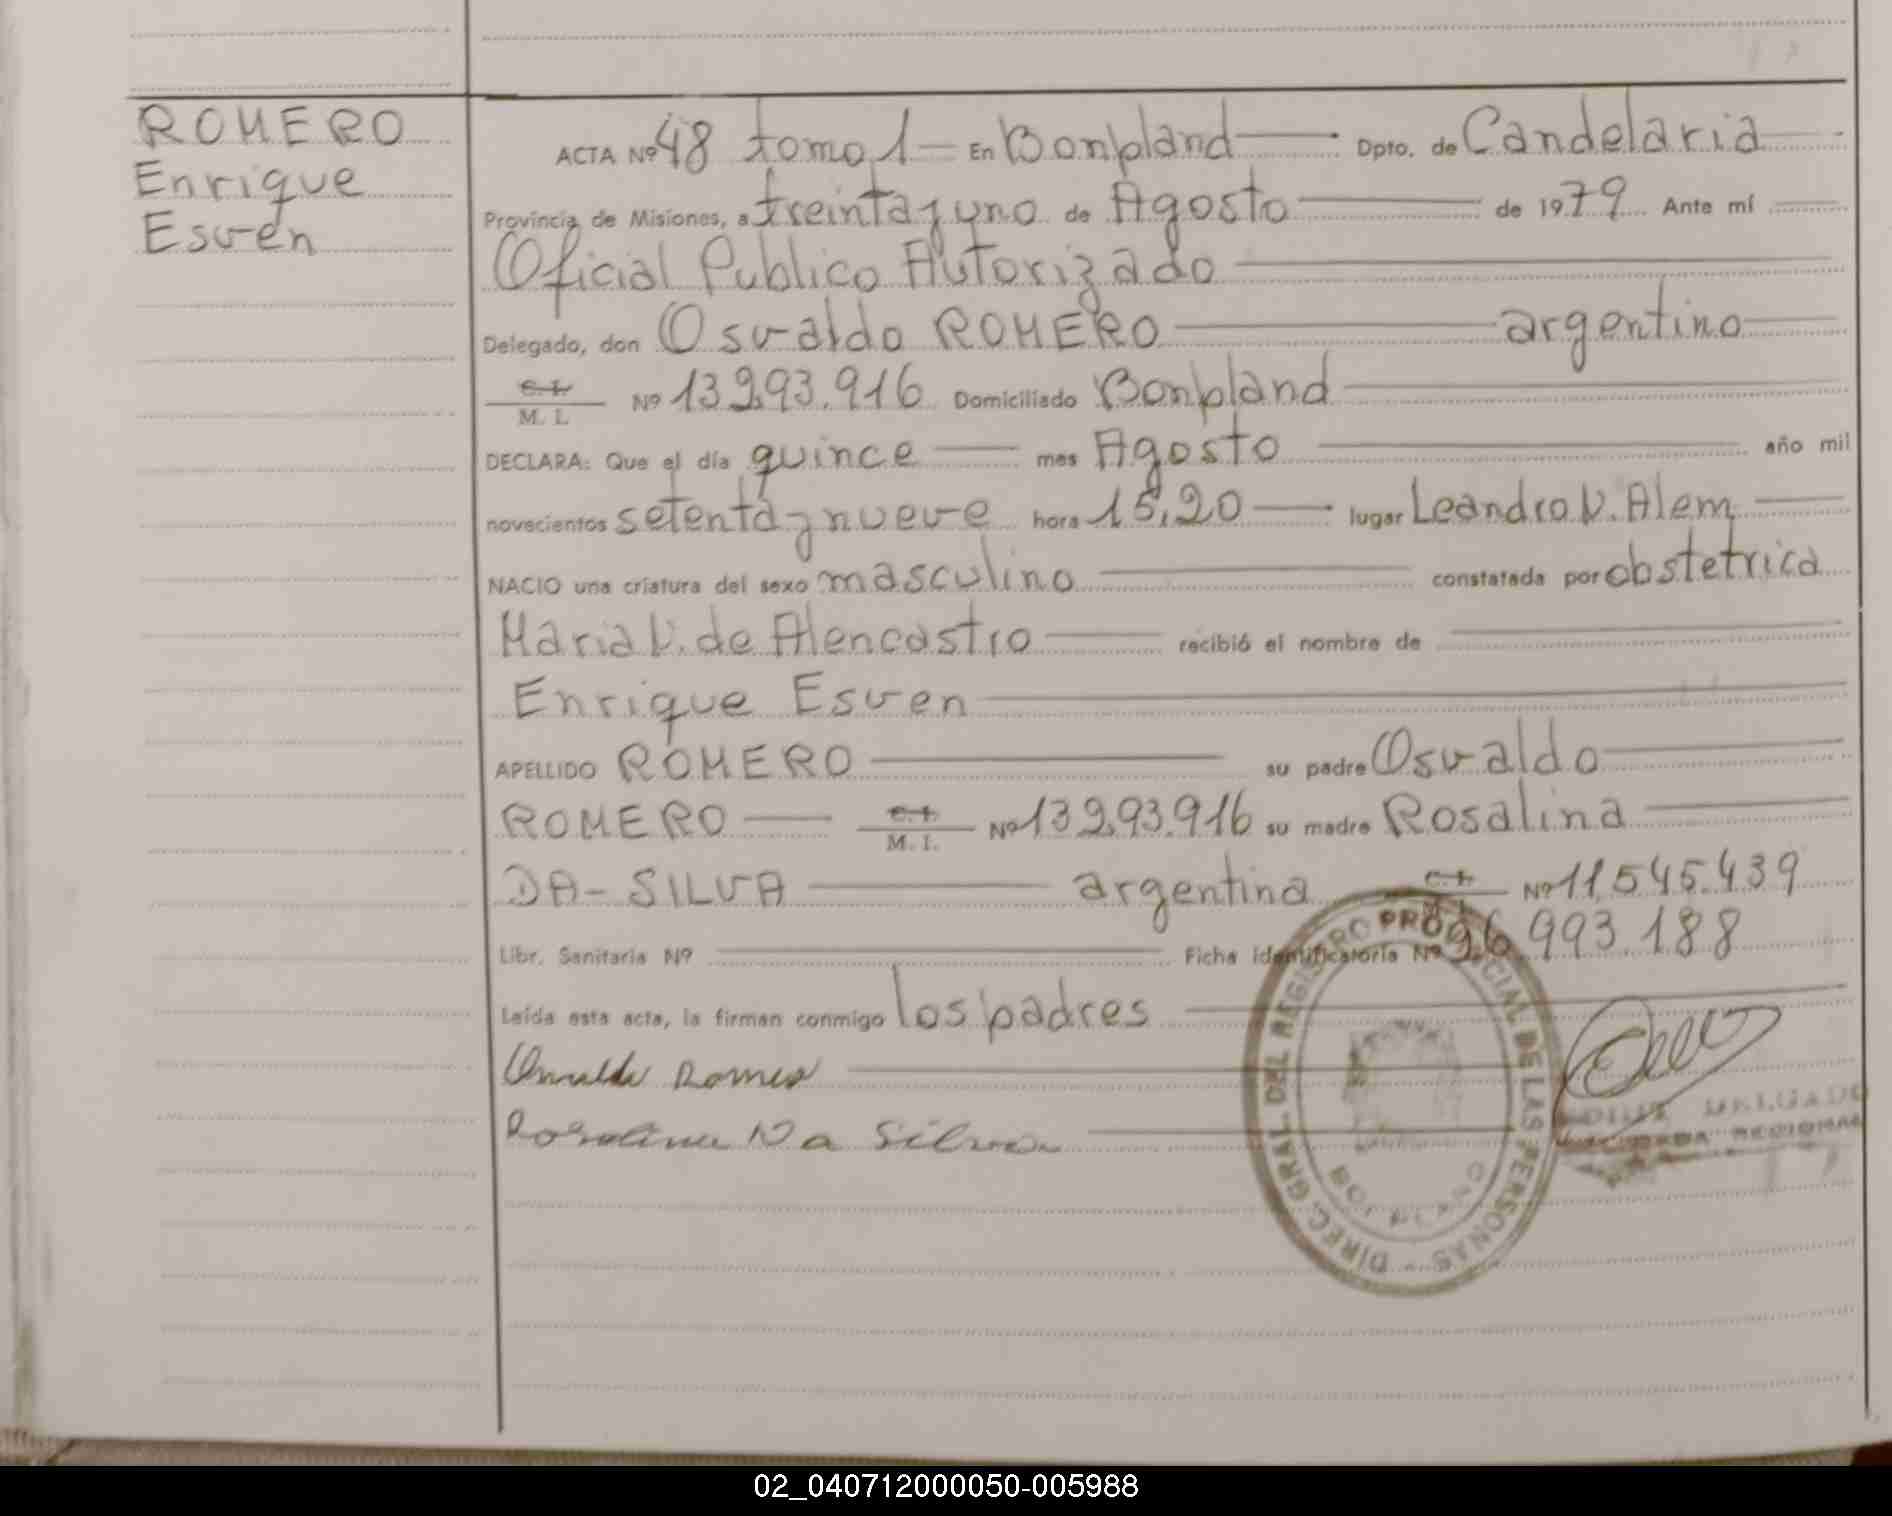 ROMERO
Enrique
Esven
ACTA Nº 48 tomo 1 - En Bonpland Dpto. de Candelaria
Provincia de Misiones, a treinta y uno de Agosto de 1979 Ante mí
Oficial Publico Autorizado
Delegado, don Osvaldo ROMERO argentino
C.I. M. I. Nº 13293.916 Domiciliado Bonpland
DECLARA: Que el día quince mes Agosto año mil
novecientos setenta y nueve hora 15,20 lugar Leandro N. Alem
NACIO una criatura del sexo masculino constatada por obstetrica
Maria V. de Alencastro recibió el nombre de
Enrique Esven
APELLIDO ROMERO su padre Osvaldo
ROMERO C.I. M. I. Nº 13293.916 su madre Rosalina
DA-SILVA argentina C.I. M. I. Nº 11,545.439
Libr. Sanitaria Nº Ficha identificatoria Nº 26.993.188
Leída esta acta, la firman conmigo los padres
Osvaldo Romero
Rosalina Da Silva
DIREC. GRAL. DEL REGISTRO PROVINCIAL DE LAS PERSONAS
BONPLAND
DELGADO
02_040712000050-005988